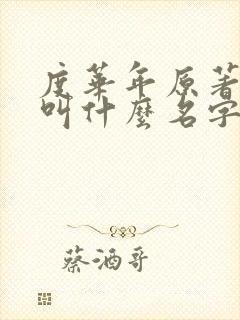 度華年原著
叫什麼名字
蔡酒哥